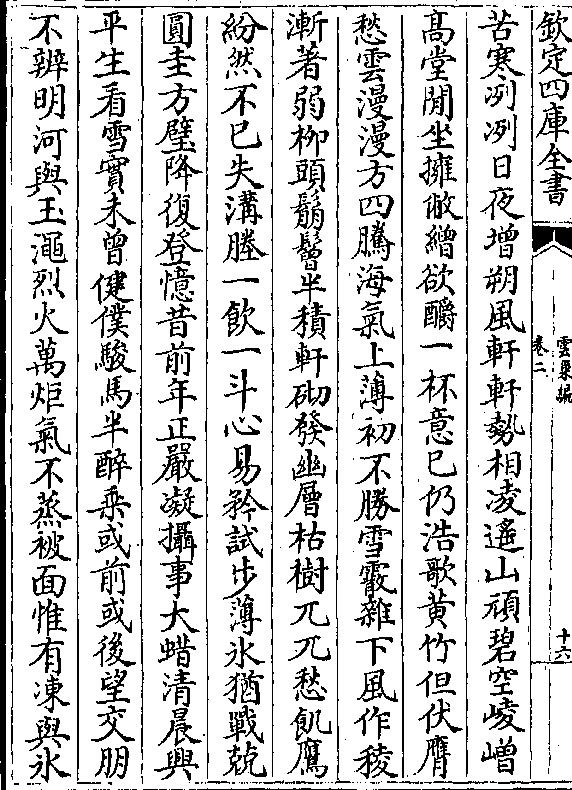 欽定四庫全書
雲巢編
卷二
十六
苦寒冽冽日夜增朔風軒軒勢相凌遙山頑碧空崚嶒
高堂閒坐擁敝繒欲釂一杯意已仍浩歌黄竹但伏膺
愁雲漫漫方四騰海氣上薄初不勝雪霰雜下風作稜
漸著弱柳頭鬅鬙半積軒砌發幽層枯樹兀兀愁飢鷹
紛然不已失溝塍一飲一斗心易矜試步薄氷猶戰兢
圓圭方璧降復登憶昔前年正嚴凝攝事大蜡清晨興
平生看雪實未曾健僕駿馬半醉乗或前或後望交朋
不辨明河與玉澠烈火萬炬氣不蒸被面惟有凍與氷